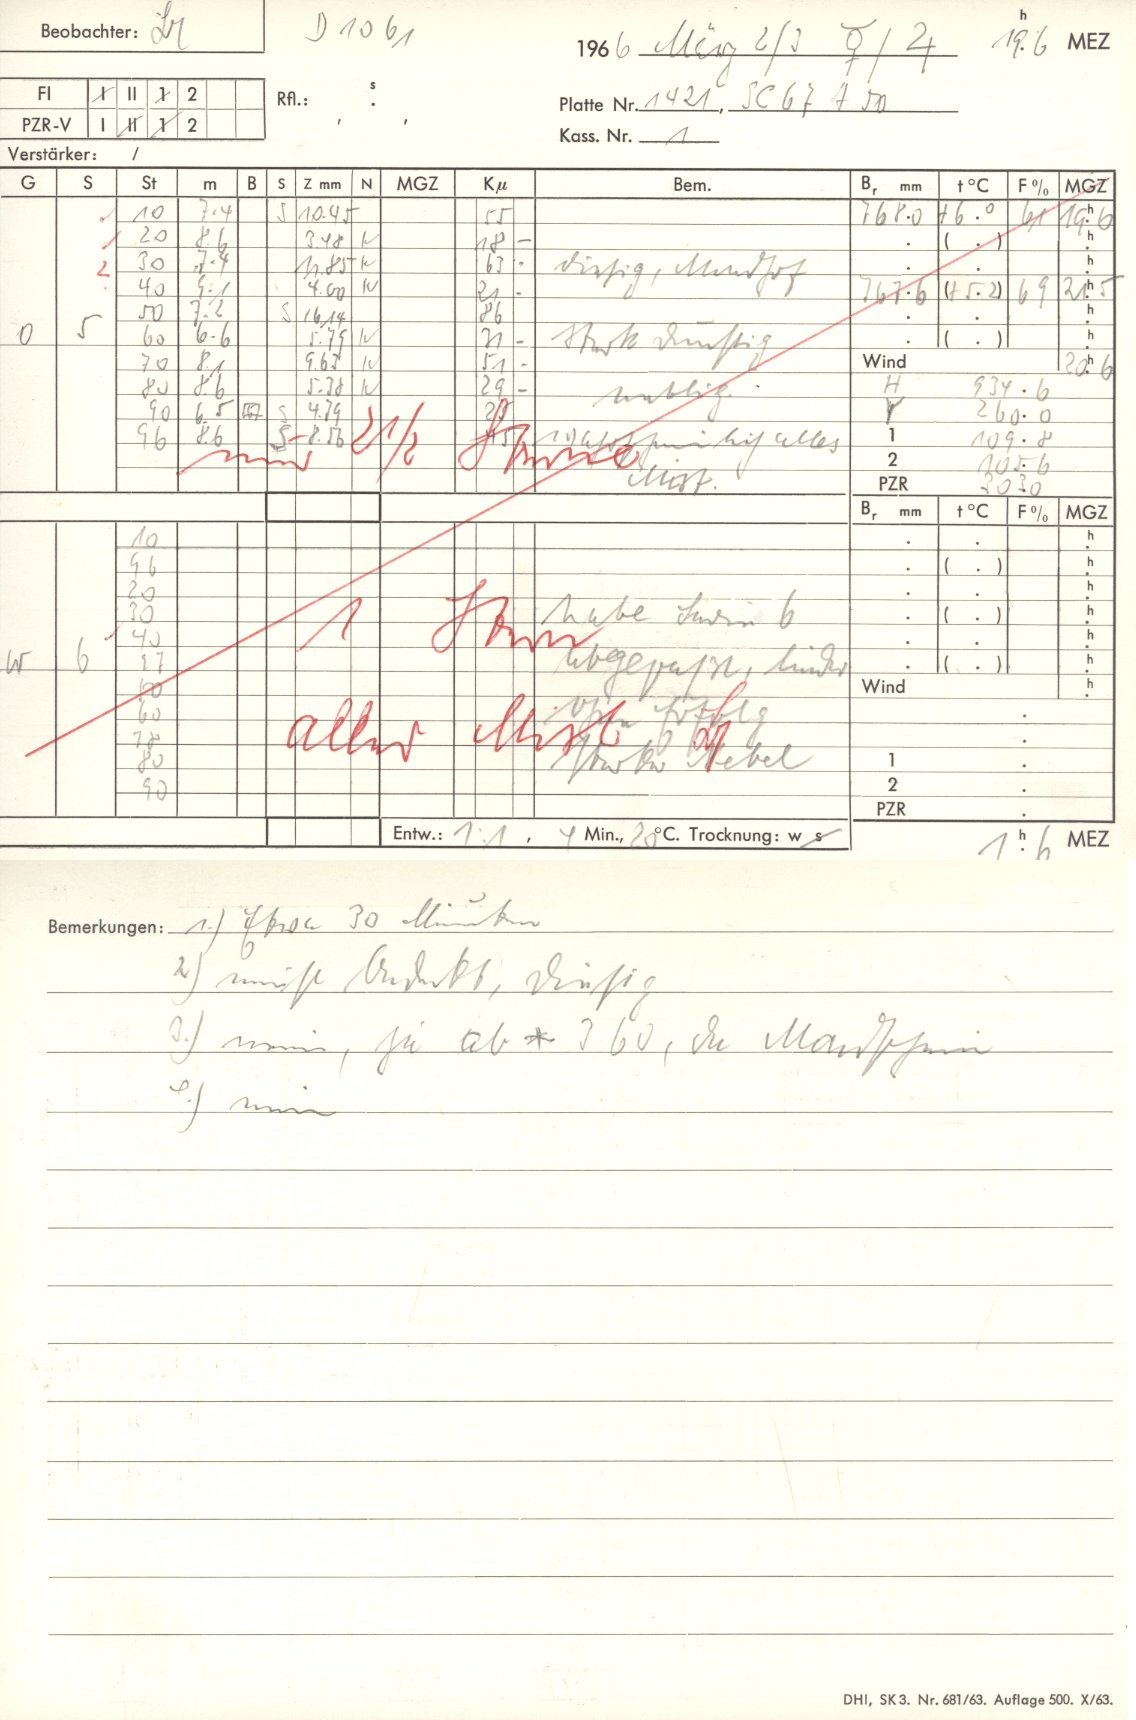 Beobachter:
D 1061
1966 März 2/3 ☿/♃ 19h.6 MEZ
FI I II 1 2
Rfl.: s
Platte Nr. 1421, SC67 A 50
PZR-V I II 1 2
Kass. Nr. 1
Verstärker: /
G S St m B S Z mm N MGZ Kμ Bem. Br mm t °C F % MGZ
10 7.4 S 10.45 55 768.0 +6.0 61 19h.6
20 8.6 3.48 N 18 – ( . ) h
2 30 7.4 11.85 N 63 dunstig, Mondhof h
40 9.1 4.00 N 21 767.6 (+5.2) 69 21h.5
50 7.2 S 16.14 86 h
O 5 60 6.6 5.79 N 31 – Stark dunstig ( . ) h
70 8.1 9.63 N 51 Wind 20h.6
80 8.6 5.38 N 29 – neblig H 934.6
90 6.5 S 4.79 Y 260.0
96 8.6 S 8.56 45 alles 1 109.8
nur 2 1/2 Sterne
Mist. 2 105.6
PZR 3030
Br mm t °C F % MGZ
10 h
96 ( . ) h
20 h
30 habe Serie 6 ( . ) h
1 Stern
40 h
W 6 57 abgepasst, leider ( . ) h
60 Wind h
60 ohne Erfolg
aller Mist
78 starker Nebel
80 1
90 2
PZR
Entw.: 1:1, 4 Min., 20°C. Trocknung: w s 1h.6 MEZ
Bemerkungen: 1.) Etwa 30 Minuten
2.) meist bedeckt, dunstig
3.) nein, ja ab * 360, da Mondschein
4.) nein
DHI, SK 3. Nr. 681/63. Auflage 500. X/63.